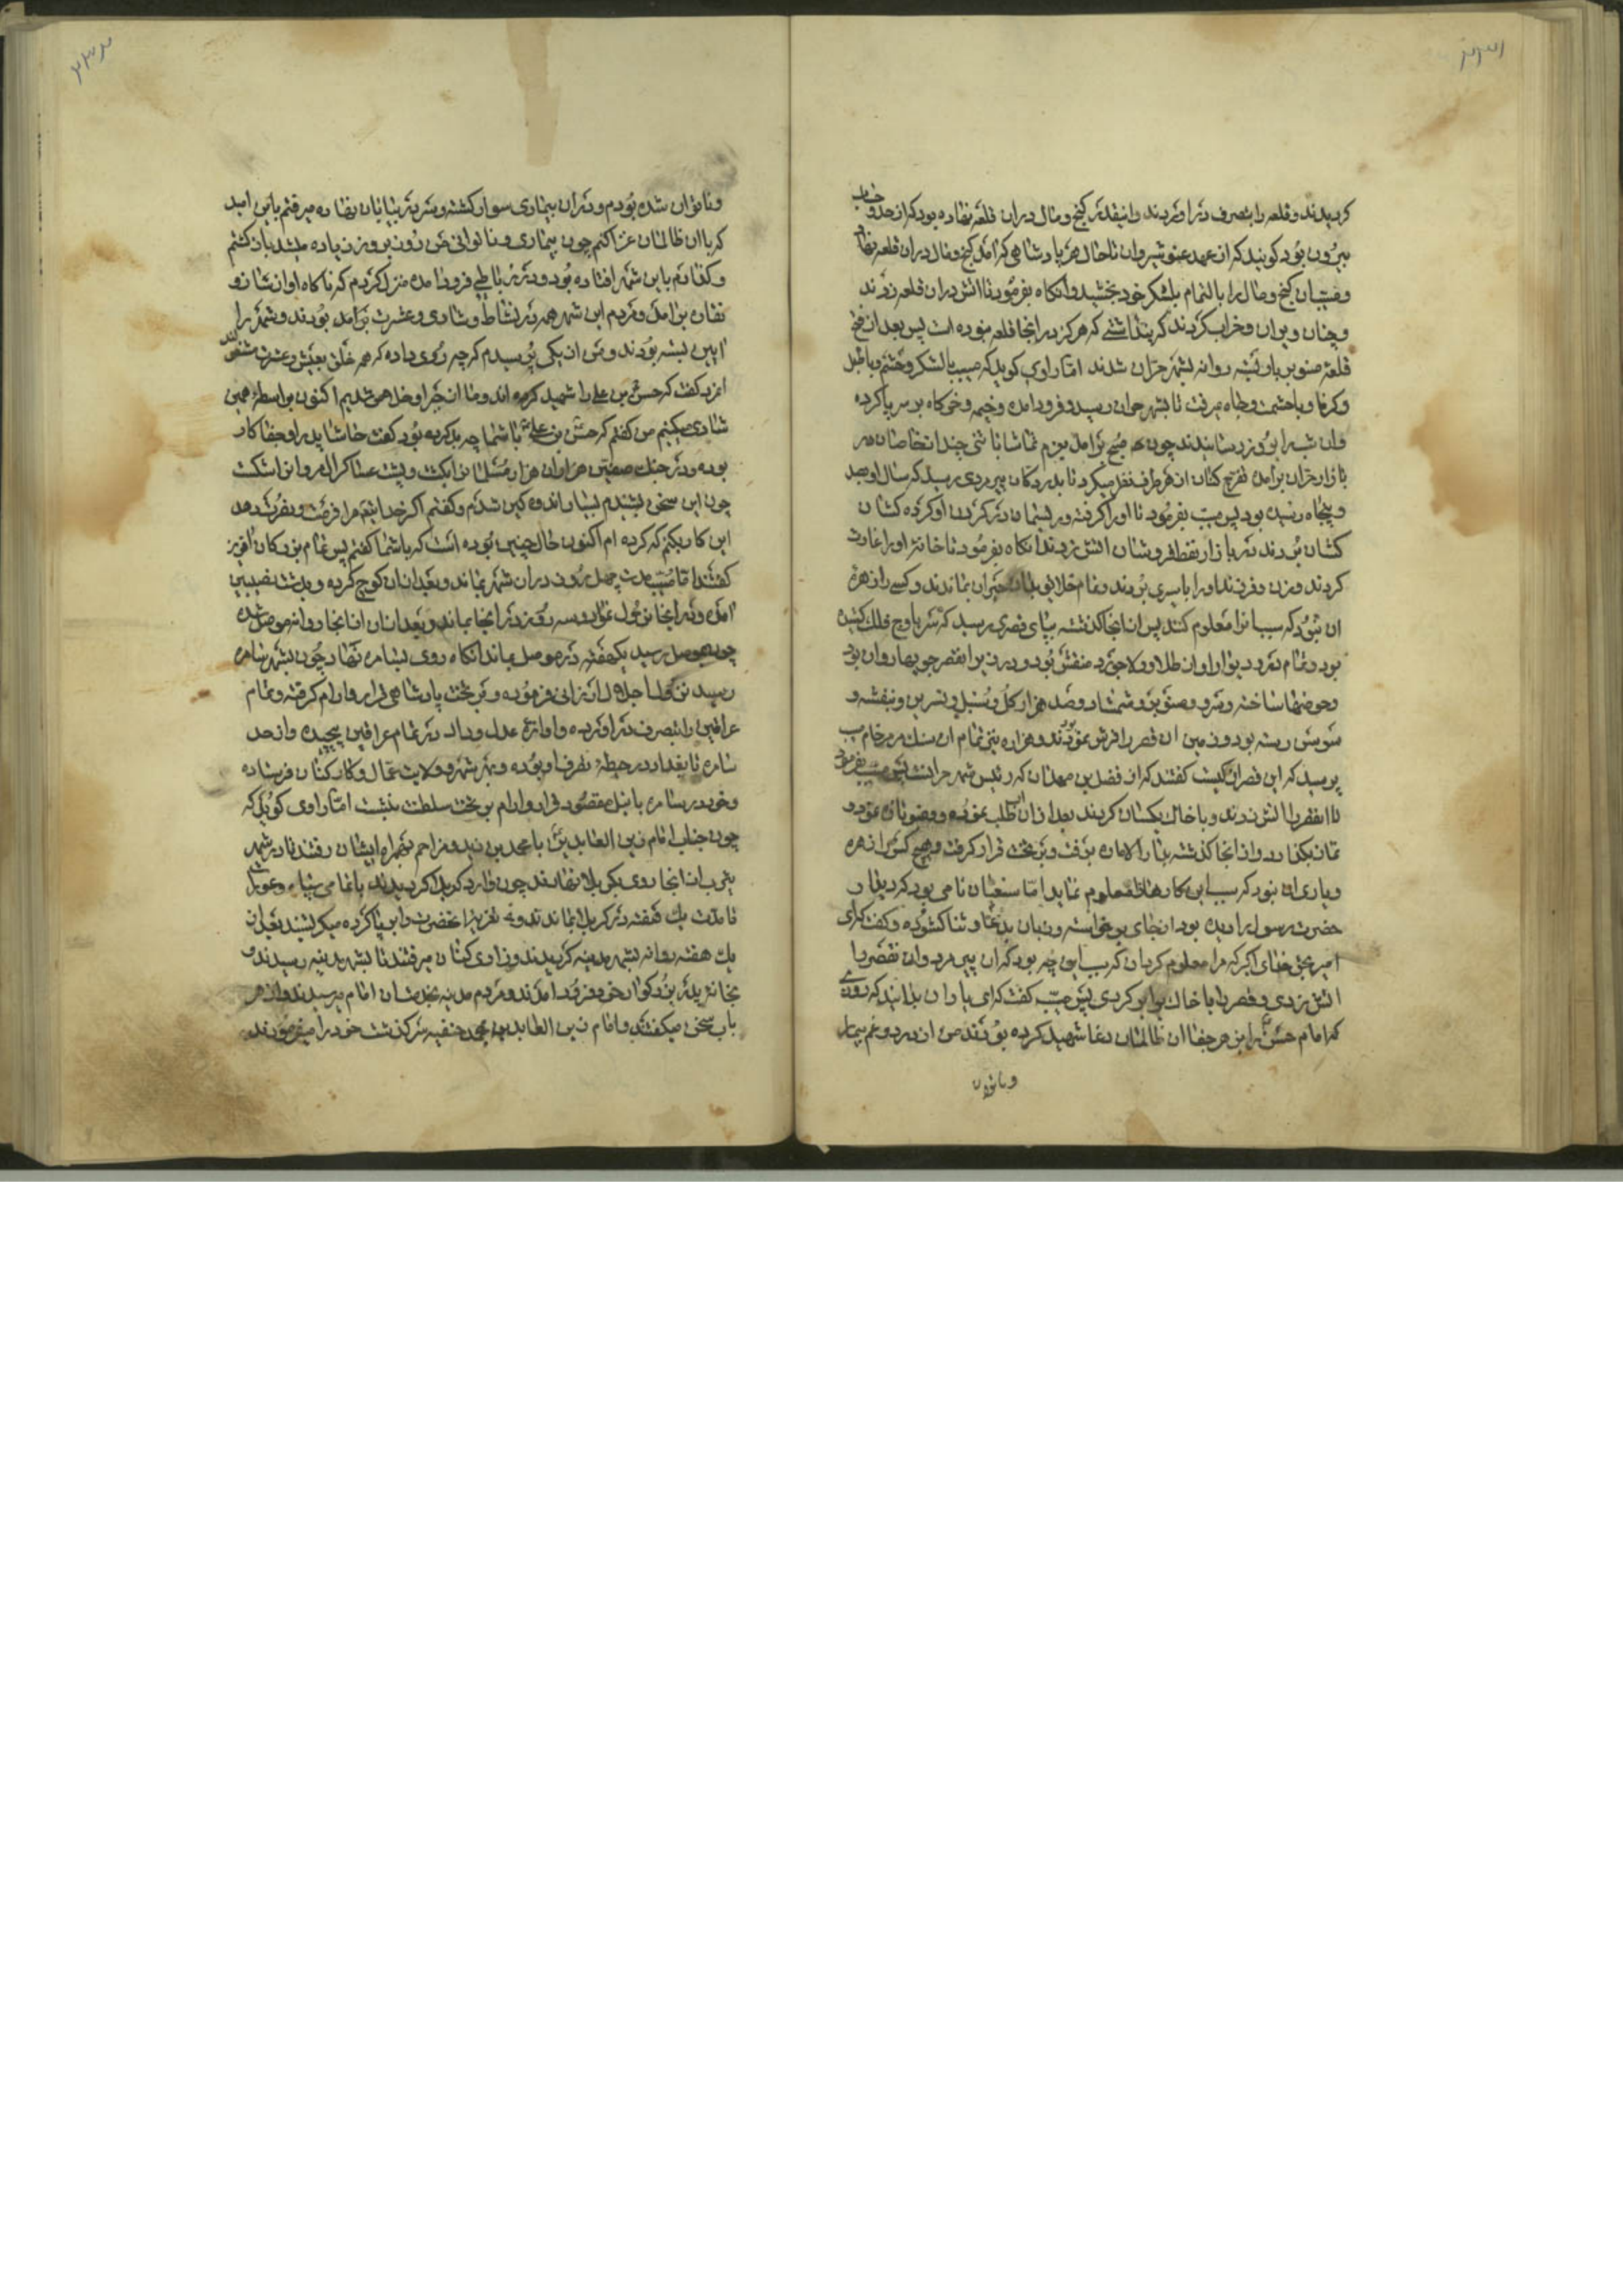 ۲۳۱
کردیدند و قلعه را بتصرف در اوردند وانقدر کنج و مال دران قلعه نهاده بود که از حد و حساب
بیرون بود کویند که از عهد نوشیروان تا حال هر پادشاهی که امد کنج و مال دران قلعه نهاد
و مسیب ان کنج و مال را بالتمام بلشکر خود بخشید وانکاه بفرمود تا اتش دران قلعه زدند
و چنان ویران و خراب کردند که پنداشتے که هرکز در انجا قلعه نبوده است پس بعد از فتح
قلعهٔ صنوبر روانه بشهر حران شدند اما راوی کوید که مسیب با لشکر و حشم و با طبل
و کرنا و با حشمت و جاه میرفت تا بشهر حران رسید و فرود امد و خیمه و خرکاه بر سر پا کرده
وان شب را بروز رسانیدند چون صبح برامد بعزم تماشا با تنی چند از خاصان در
بازار حران برامد تفرج کنان از هر طرف نظر میکرد تا بدر دکان پیر مردی رسید که سال او بصد
و پنجاه رسیده بود پس مسیب بفرمود تا او را کرفته و ریسمان در کردن او کرده کشان
کشان بردند در بازار نفط فروشان اتش زدند انکاه بفرمود تا خانهٔ او را غارت
کردند و زن و فرزند او را باسیری بردند و تمام خلایق حیران بماندند و کسے را زهره
ان نبود که سبب انرا معلوم کند پس از انجا کذشته بپای قصری رسید که سر باوج فلک کشیده
بود و تمام در و دیوار او از طلا و لاجورد منقش بود و در زیر ان قصر جویها روان بود
و حوضها ساخته و سرو و صنوبر و شمشاد و صد هزار کل و سنبل و نسرین و بنفشه و
سوسن رسته بود و زمین ان قصر را فرش نموده بودند تمام از سنک مرمر خام مسیب
پرسید که این قصر از کیست کفتند که از فضل بن مهلان که رئیس شهر حرانست پس مسیب بفرمود
تا انقصر را اتش زدند و با خاک یکسان کردند بعد ازان اب طلب نموده و وضو تازه نمود و
نماز بکذارد و از انجا کذشته بدار الاماره برفت و بر تخت قرار کرفت و هیچ کس را زهره
و یارای ان نبود که سبب این کارها را معلوم نماید اما سنعان نامی بود که دیدار
حضرت رسول را دیده بود از جای برخواسته و زبان بدعا و ثنا کشوده و کفت که ای
امیر بحق خدای اکبر که مرا معلوم کردان که سبب این چه بود که ان پیر مرد وان قصر را
اتش زدی و قصر را با خاک برابر کردی پس مسیب کفت که ای یاران بدانید که روزی
که امام حسین را از جور و جفا ان ظالمان دغا شهید کرده بودند من ازان درد و غم بیمار
و ناتوان
۲۳۲
و ناتوان شده بودم و دران بیماری سوار کشته و سر در بیابان نهاده میرفتم باین امید
که با ان ظالمان غزا کنم چون بیماری و ناتوانی من روز بروز زیاده میشد باز کشتم
و کذارم باین شهر افتاده بود و در رباطی فرود امده منزل کردم که ناکاه اواز شاد و
نقاره برامد و مردم این شهر همه در نشاط و شادی و عشرت برامده بودند و شهر را
ایین بسته بودند و من از یکی پرسیدم که چه روی داده که همه خلق بعیش و عشرت مشغولند
انمرد کفت که حسین بن علی را شهید کرده اند و ما از جور او خلاص شدیم اکنون بواسطه همین
شادی میکنیم من کفتم که حسین بن علی با شما چه بد کرده بود کفت حاشا پدر او جفاکار
بوده و در جنک صفین هزاران هزار مسلمانرا بکشت و پشت عساکر ال مروانرا شکست
چون این سخن بشنیدم بسیار اندوه کین شدم و کفتم اکر خدایتعالی مرا فرصت و نصرت دهد
این کار بکنم که کرده ام اکنون حال چنین بوده است که باشما کفتم پس تمام بزرکان افرین
کفتند اما مسیب مدت چهل روز دران شهر بماند و بعد ازان کوچ کرده و بدشت نصیبین
امد و در انجا نزول نموده و سه روز در انجا بماند و بعد ازان از انجا روانه موصل شده
چون بموصل رسید یکهفته در موصل بماند انکاه روی بسامره نهاد چون بشهر سامره
رسید نزول اجلال ارزانی فرموده و بر تخت پادشاهی قرار و ارام کرفته و تمام
عراقین را بتصرف در اورده و اوازه عدل و داد در تمام عراقین پیچیده و از حد
سامره تا بغداد در حیطهٔ تصرف او بوده و بهر شهر و ولایت عمال و کارکنان فرستاده
و خود در سامره با نیل مقصود قرار و ارام بر تخت سلطنت بنشست اما راوی کوید که
چون جناب امام زین العابدین با محمد بن زید و مزاحم همراه ایشان رفتند تا در شهر
یثرب از انجا روی بکربلا نهادند چون وارد کربلا کردیدند با تمامی سپاه و عویل
تا مدت یک هفته در کربلا بماندند و تعزیه انحضرت را برپا کرده میکریستند بعد از
یک هفته روانه بشهر مدینه کردیدند و زاری کنان میرفتند تا بشهر مدینه رسیدند و
بخانهٔ پدر بزرکوار خود فرود امدند و مردم مدینه بخدمت ان امام میرسیدند و از هر
باب سخن میکفتند و امام زین العابدین و محمد حنفیه سر کذشت خود را میفرمودند